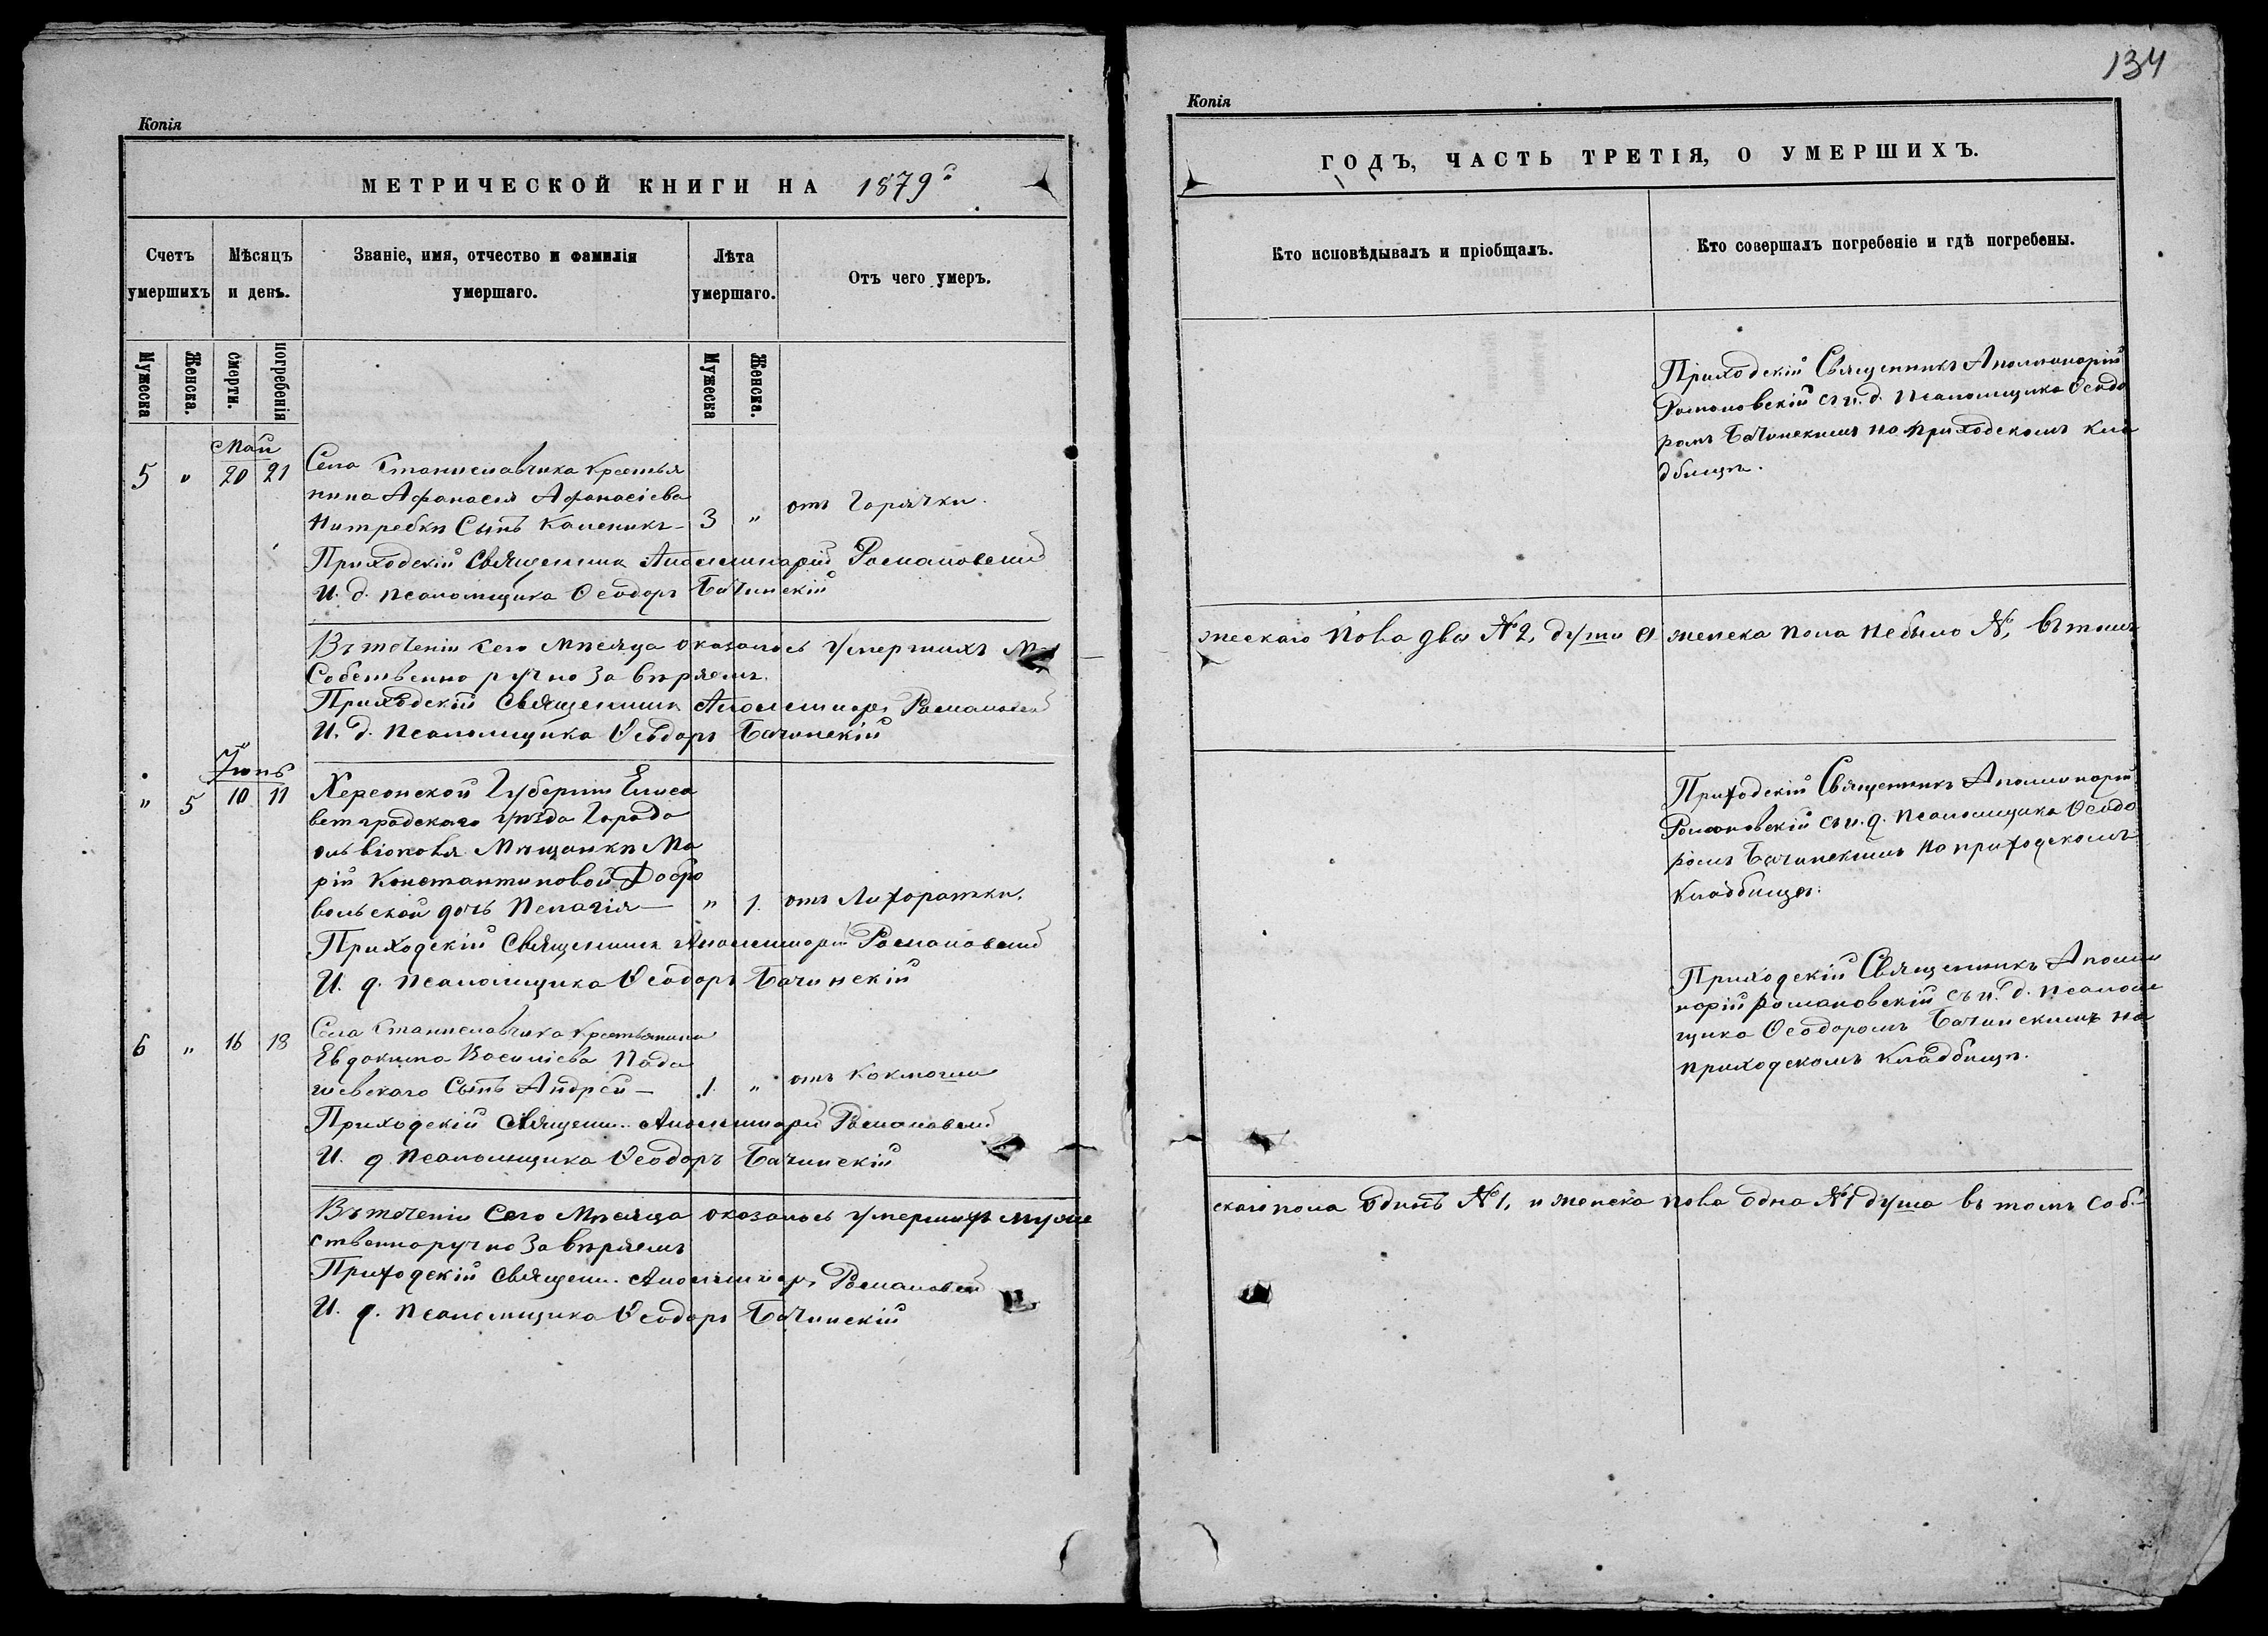 134
Копія
МЕТРИЧЕСКОЙ КНИГИ НА 1879
Счетъ умершихъ
Мѣсяцъ и день.
Званіе, имя, отчество и фамилія умершаго.
Лѣта умершаго.
Отъ чего умеръ.
Мужеска
Женска.
смерти.
погребенія
Мужеска
Женска.
Май
5 " 20 21 Села Станиславчика Крестья
нина Афанасія Афанасіева
сынъ 3 " отъ Горячки.
Приходскій Священникъ Аполлинарій Романовскій
И. д. псаломщика Ѳеодоръ Бачинскій
Въ теченіи сего Мѣсяца оказалось умершихъ Му
Собственно ручно завѣряемъ.
Приходскій Священникъ Аполлинар. Романовскій
И. д. псаломщика Ѳеодоръ Бачинскій
Іюнь
" 5 10 11 Херсонской Губерніи Елиса
ветградскаго уѣзда Города
Мѣщанки Ма
ріи Константиновой Добро
вольской дочь Пелагія — " 1. отъ Лихоратки.
Приходскій Священникъ Аполлинарій Романовскій
И. д. псаломщика Ѳеодоръ Бачинскій
6 " 16 18 Села Станиславчика Крестьянина
Евдокима Василіева
сынъ Андрей — 1. " отъ
Приходскій Священн. Аполлинарій Романовскій
И. д. псаломщика Ѳеодоръ Бачинскій
Въ теченіи Сего Мѣсяца оказалось умершихъ муже
ственноручно завѣряемъ
Приходскій Священн. Аполлинар. Романовскій
И. д. псаломщика Ѳеодоръ Бачинскій
Копія
ГОДЪ, ЧАСТЬ ТРЕТІЯ, О УМЕРШИХЪ.
Кто исповѣдывалъ и пріобщалъ.
Кто совершалъ погребеніе и гдѣ погребены.
Приходскій Священникъ Аполлинарій
Романовскій съ и. д. псаломщика Ѳеодо
ромъ Бачинскимъ на приходскомъ кла
дбищѣ.
жескаго пола два №2, души а женска пола небыло №, въ томъ
Приходскій Священникъ Аполлинарій
Романовскій съ и. д. псаломщика Ѳеодо
ромъ Бачинскимъ на приходскомъ
кладбищѣ.
Приходскій Священникъ Аполли
нарій Романовскій съ и. д. псалом
щика Ѳеодоромъ Бачинскимъ на
приходскомъ кладбищѣ.
скаго пола одинъ №1, и женска пола одна №1 душа въ томъ соб.